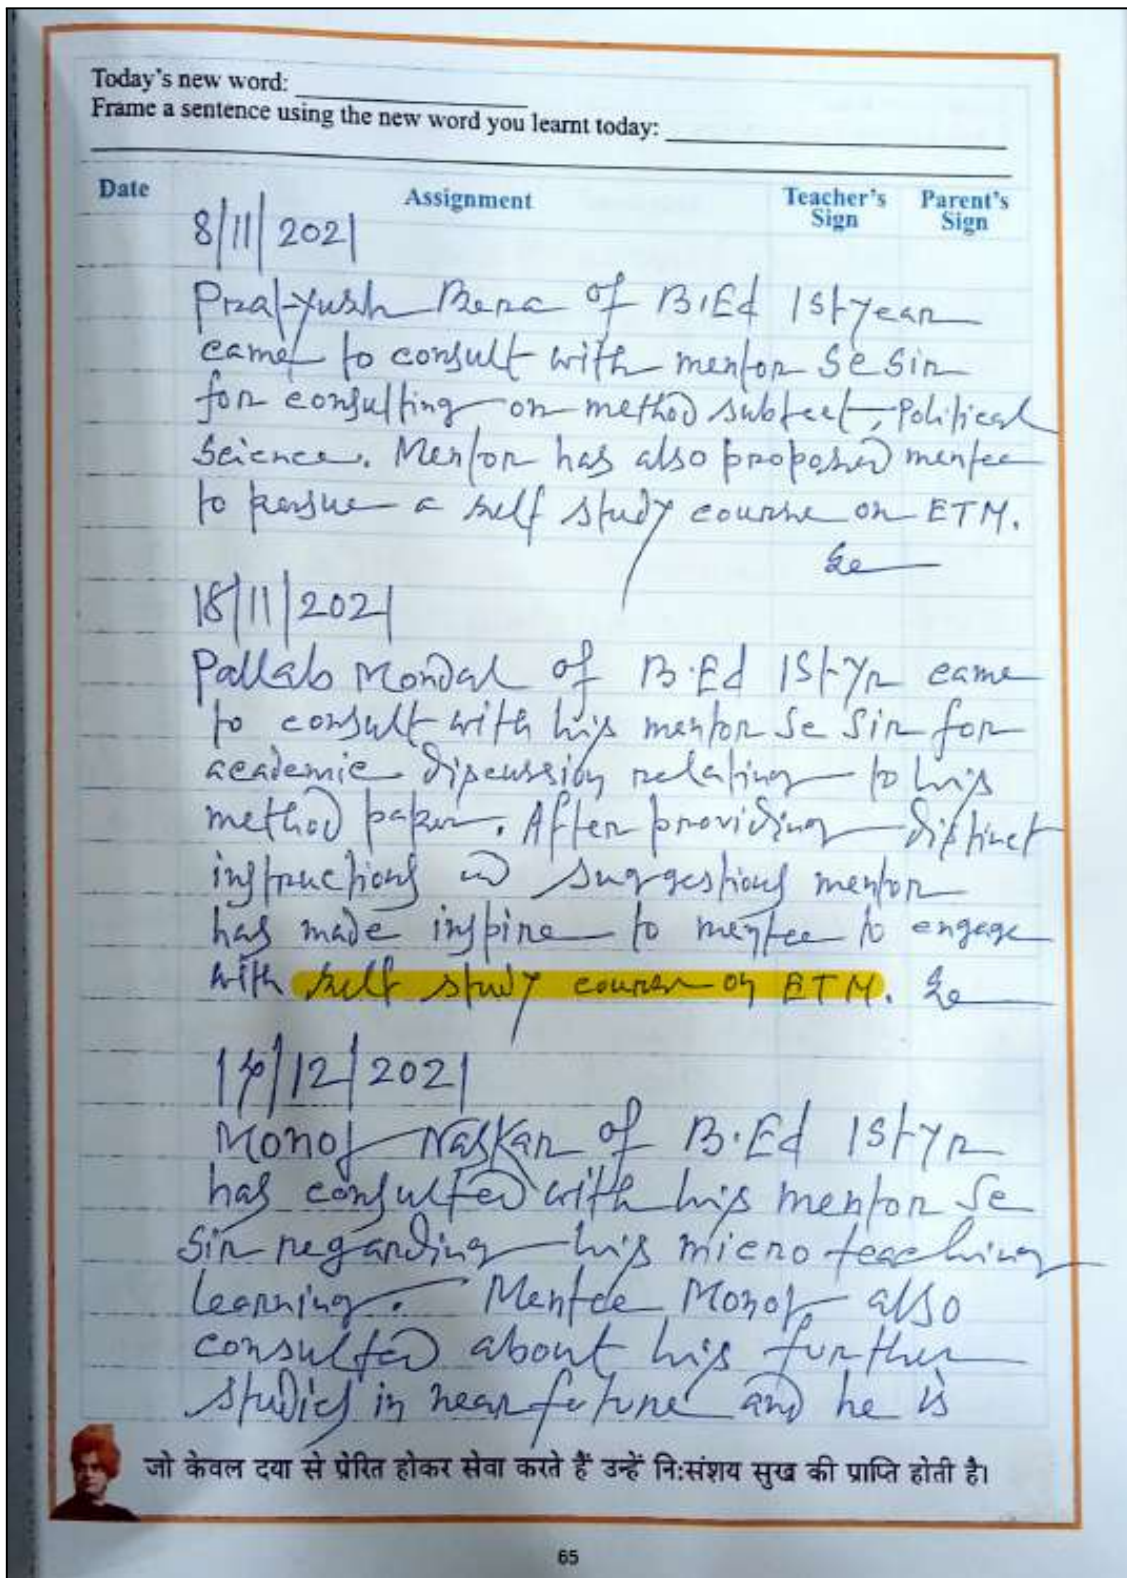 Today's new word:
Frame a sentence using the new word you learnt today:
Date Assignment Teacher's Sign Parent's Sign
8/11/2021
Pratyush Bera of B.Ed 1st year
came to consult with mentor Sc Sir
for consulting on method subject, Political
Science. Mentor has also proposed mentee
to persue a self study course on ETM.
18/11/2021
Pallab Mondal of B.Ed 1st yr came
to consult with his mentor Sc Sir for
academic discussion relating to his
method paper. After providing distinct
instructions and suggestions mentor
has made inspire to mentee to engage
with self study course on ETM.
14/12/2021
Monoj Naskar of B.Ed 1st yr
has consulted with his mentor Sc
Sir regarding his micro teaching
learning. Mentee Monoj also
consulted about his further
studies in near future and he is
जो केवल दया से प्रेरित होकर सेवा करते हैं उन्हें नि:संशय सुख की प्राप्ति होती है।
65